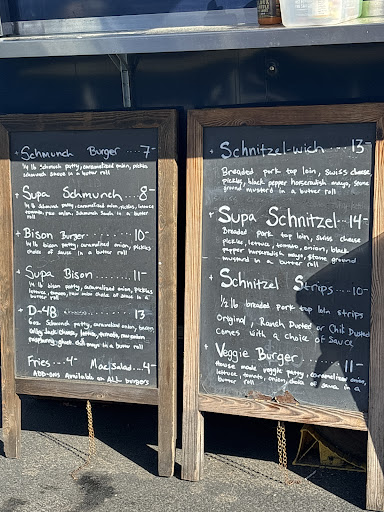 Schmunch Burger ....7-
1/4 lb Schmunch patty, caramelized onion, pickles
schmunch sauce in a butter roll
Supa Schmunch....8-
1/4 lb Schmunch patty, caramelized onion, pickles, lettuce
tomato, raw onion, Schmunch Sauce in a butter
roll
Bison Burger.....10-
1/4 lb bison patty, caramelized onion, pickles
choice of sauce in a butter roll
Supa Bison.....11-
1/4 lb bison patty, caramelized onion, pickles
lettuce, tomato, raw onion choice of sauce in a
butter roll
D-4B ............ 13-
6oz Schmunch patty, caramelized onion, bacon
jack cheese, lettuce, tomato,
raspberry mayo in a butter roll
Fries...4- Mac Salad...4-
ADD-ons Available on ALL burgers
Schnitzel-wich.....13-
Breaded pork top loin, swiss cheese,
pickles, black pepper horseradish mayo, stone
ground mustard in a butter roll
Supa Schnitzel...14-
Breaded pork top loin, swiss cheese
pickles, lettuce, tomato, onions, black
pepper horseradish mayo, stone ground
mustard in a butter roll
Schnitzel Strips....10-
1/2 lb breaded pork top loin strips
Original, Ranch Dusted or Chili Dusted
comes with a choice of Sauce
Veggie Burger .....11-
House made veggie patty, caramelized onion,
lettuce tomato onion, choice of sauce in a
butter roll